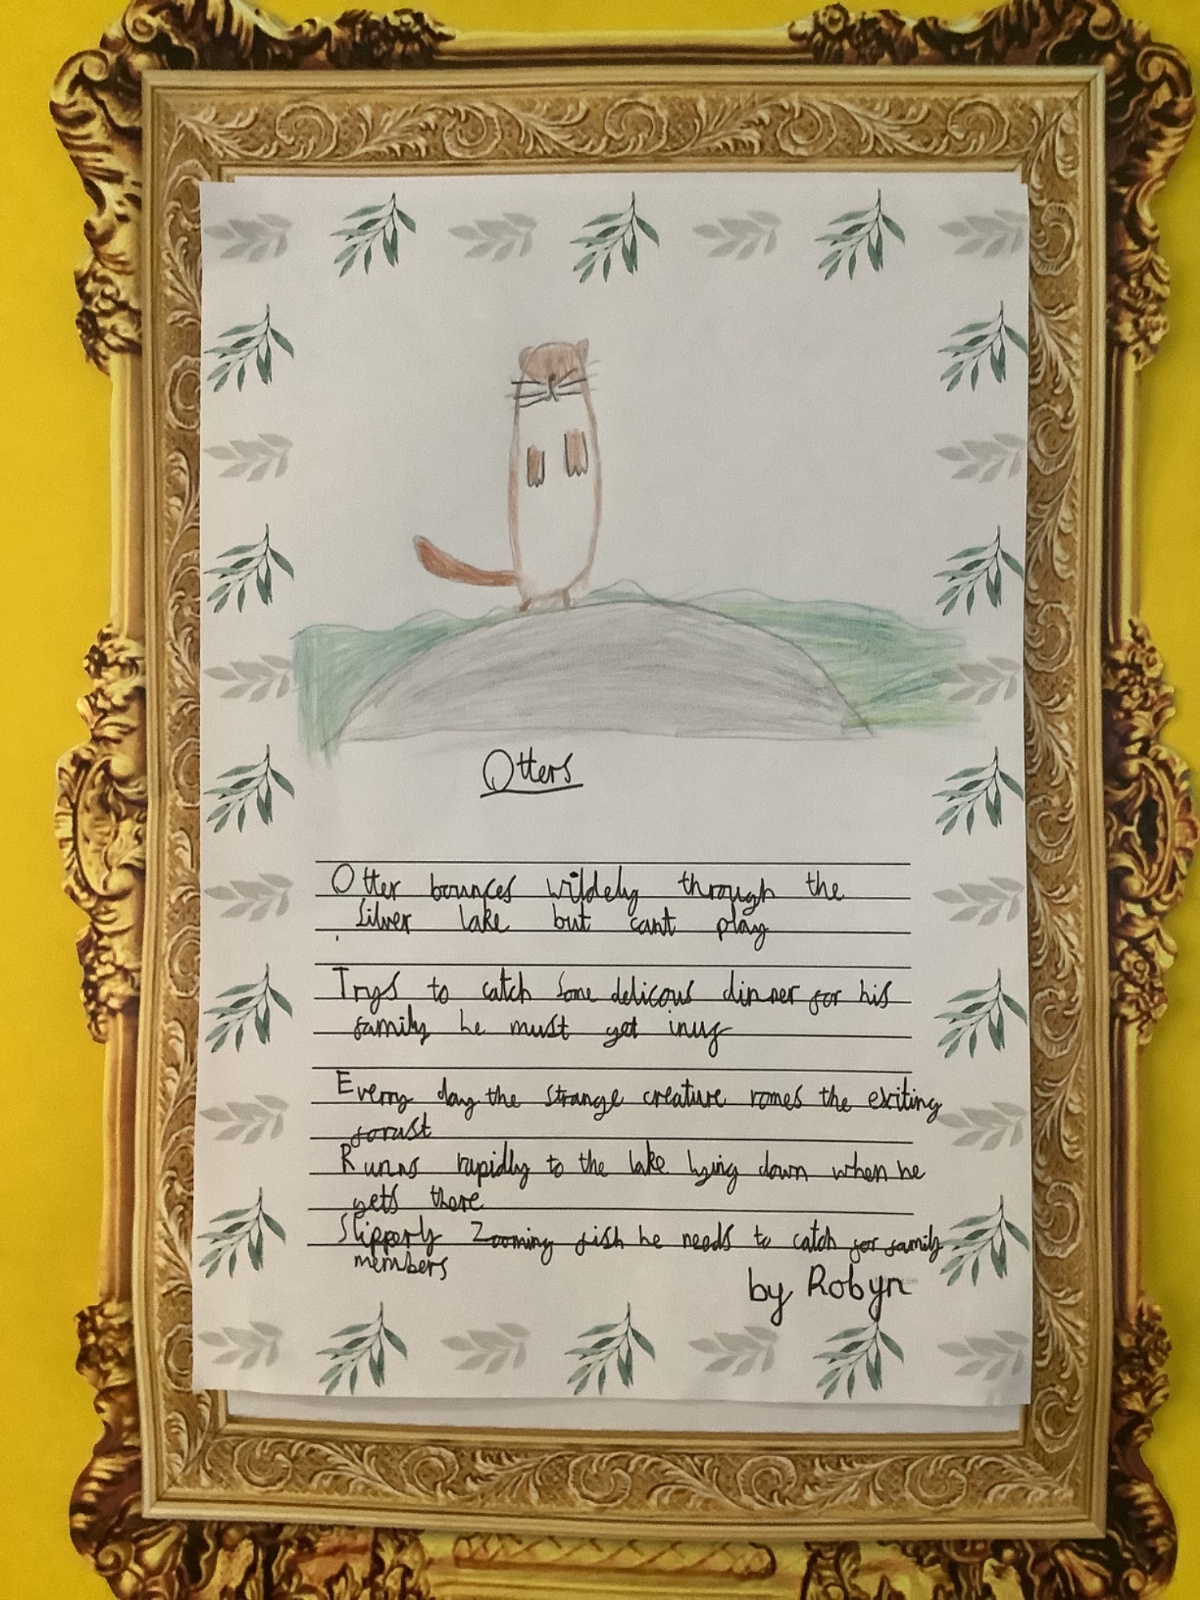 Otters
Otter bounces wildely through the
silver lake but cant play
Trys to catch some delicous dinner for his
family he must get inuf
Every day the strange creature romes the exiting
forust
Runns rapidly to the lake lying down when he
gets there
Slipperly Zooming fish he needs to catch for family
members
by Robyn